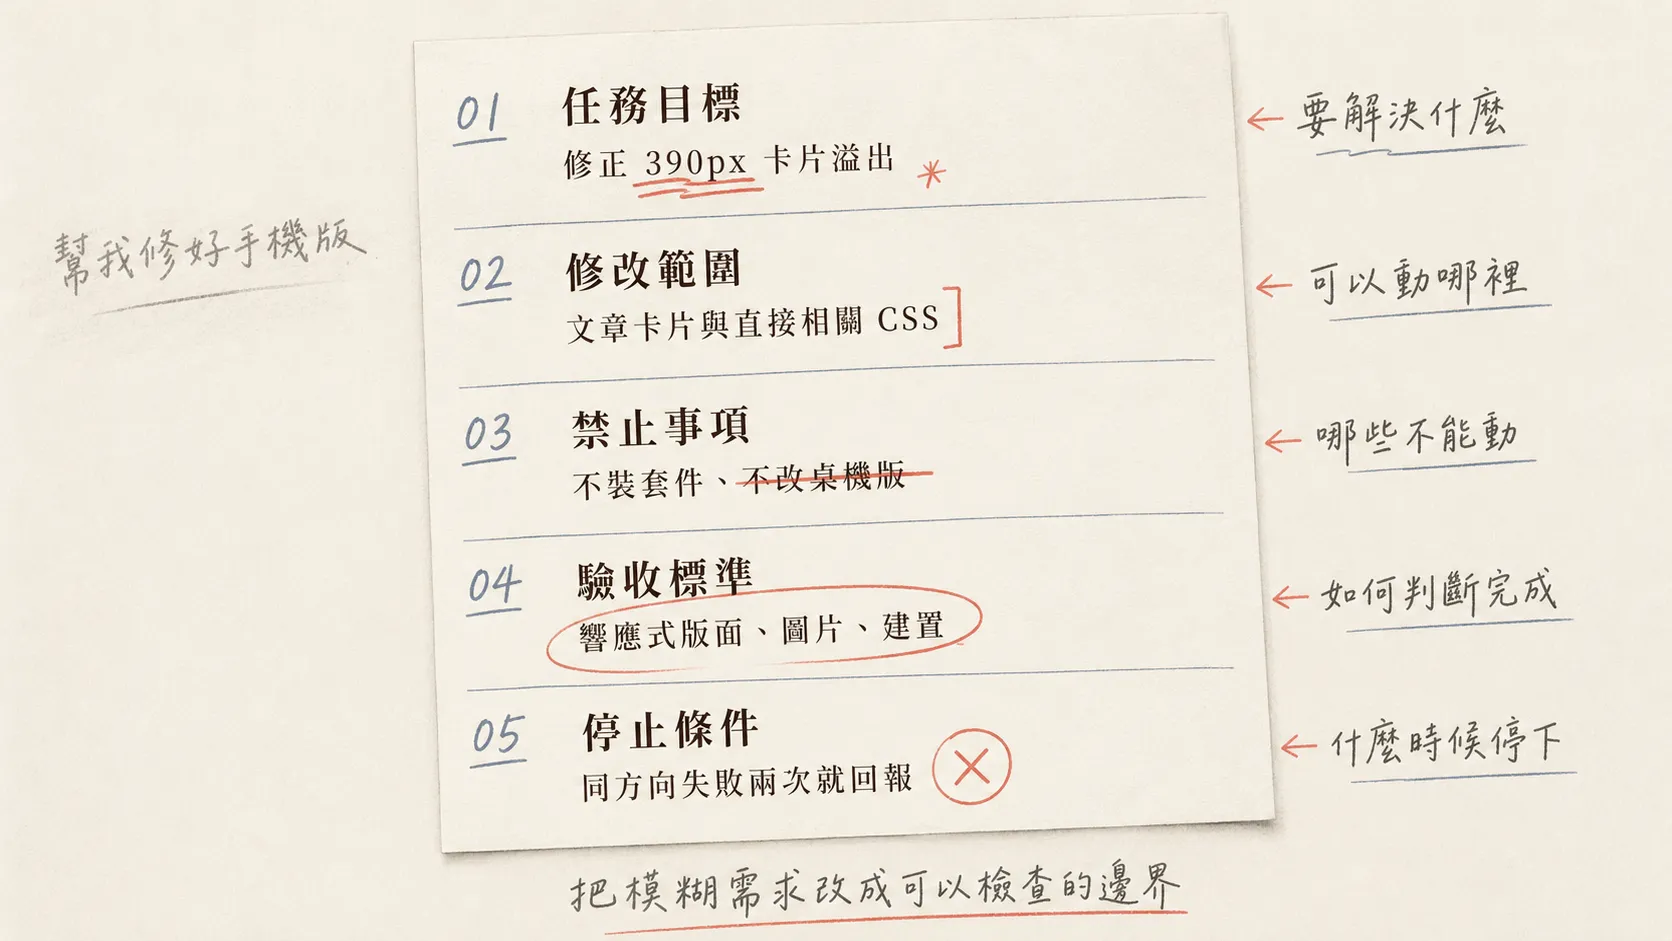 幫我修好手機版
01 任務目標
修正 390px 卡片溢出 *
← 要解決什麼
02 修改範圍
文章卡片與直接相關 CSS ]
← 可以動哪裡
03 禁止事項
不裝套件、不改桌機版
← 哪些不能動
04 驗收標準
響應式版面、圖片、建置
← 如何判斷完成
05 停止條件
同方向失敗兩次就回報
← 什麼時候停下
把模糊需求改成可以檢查的邊界